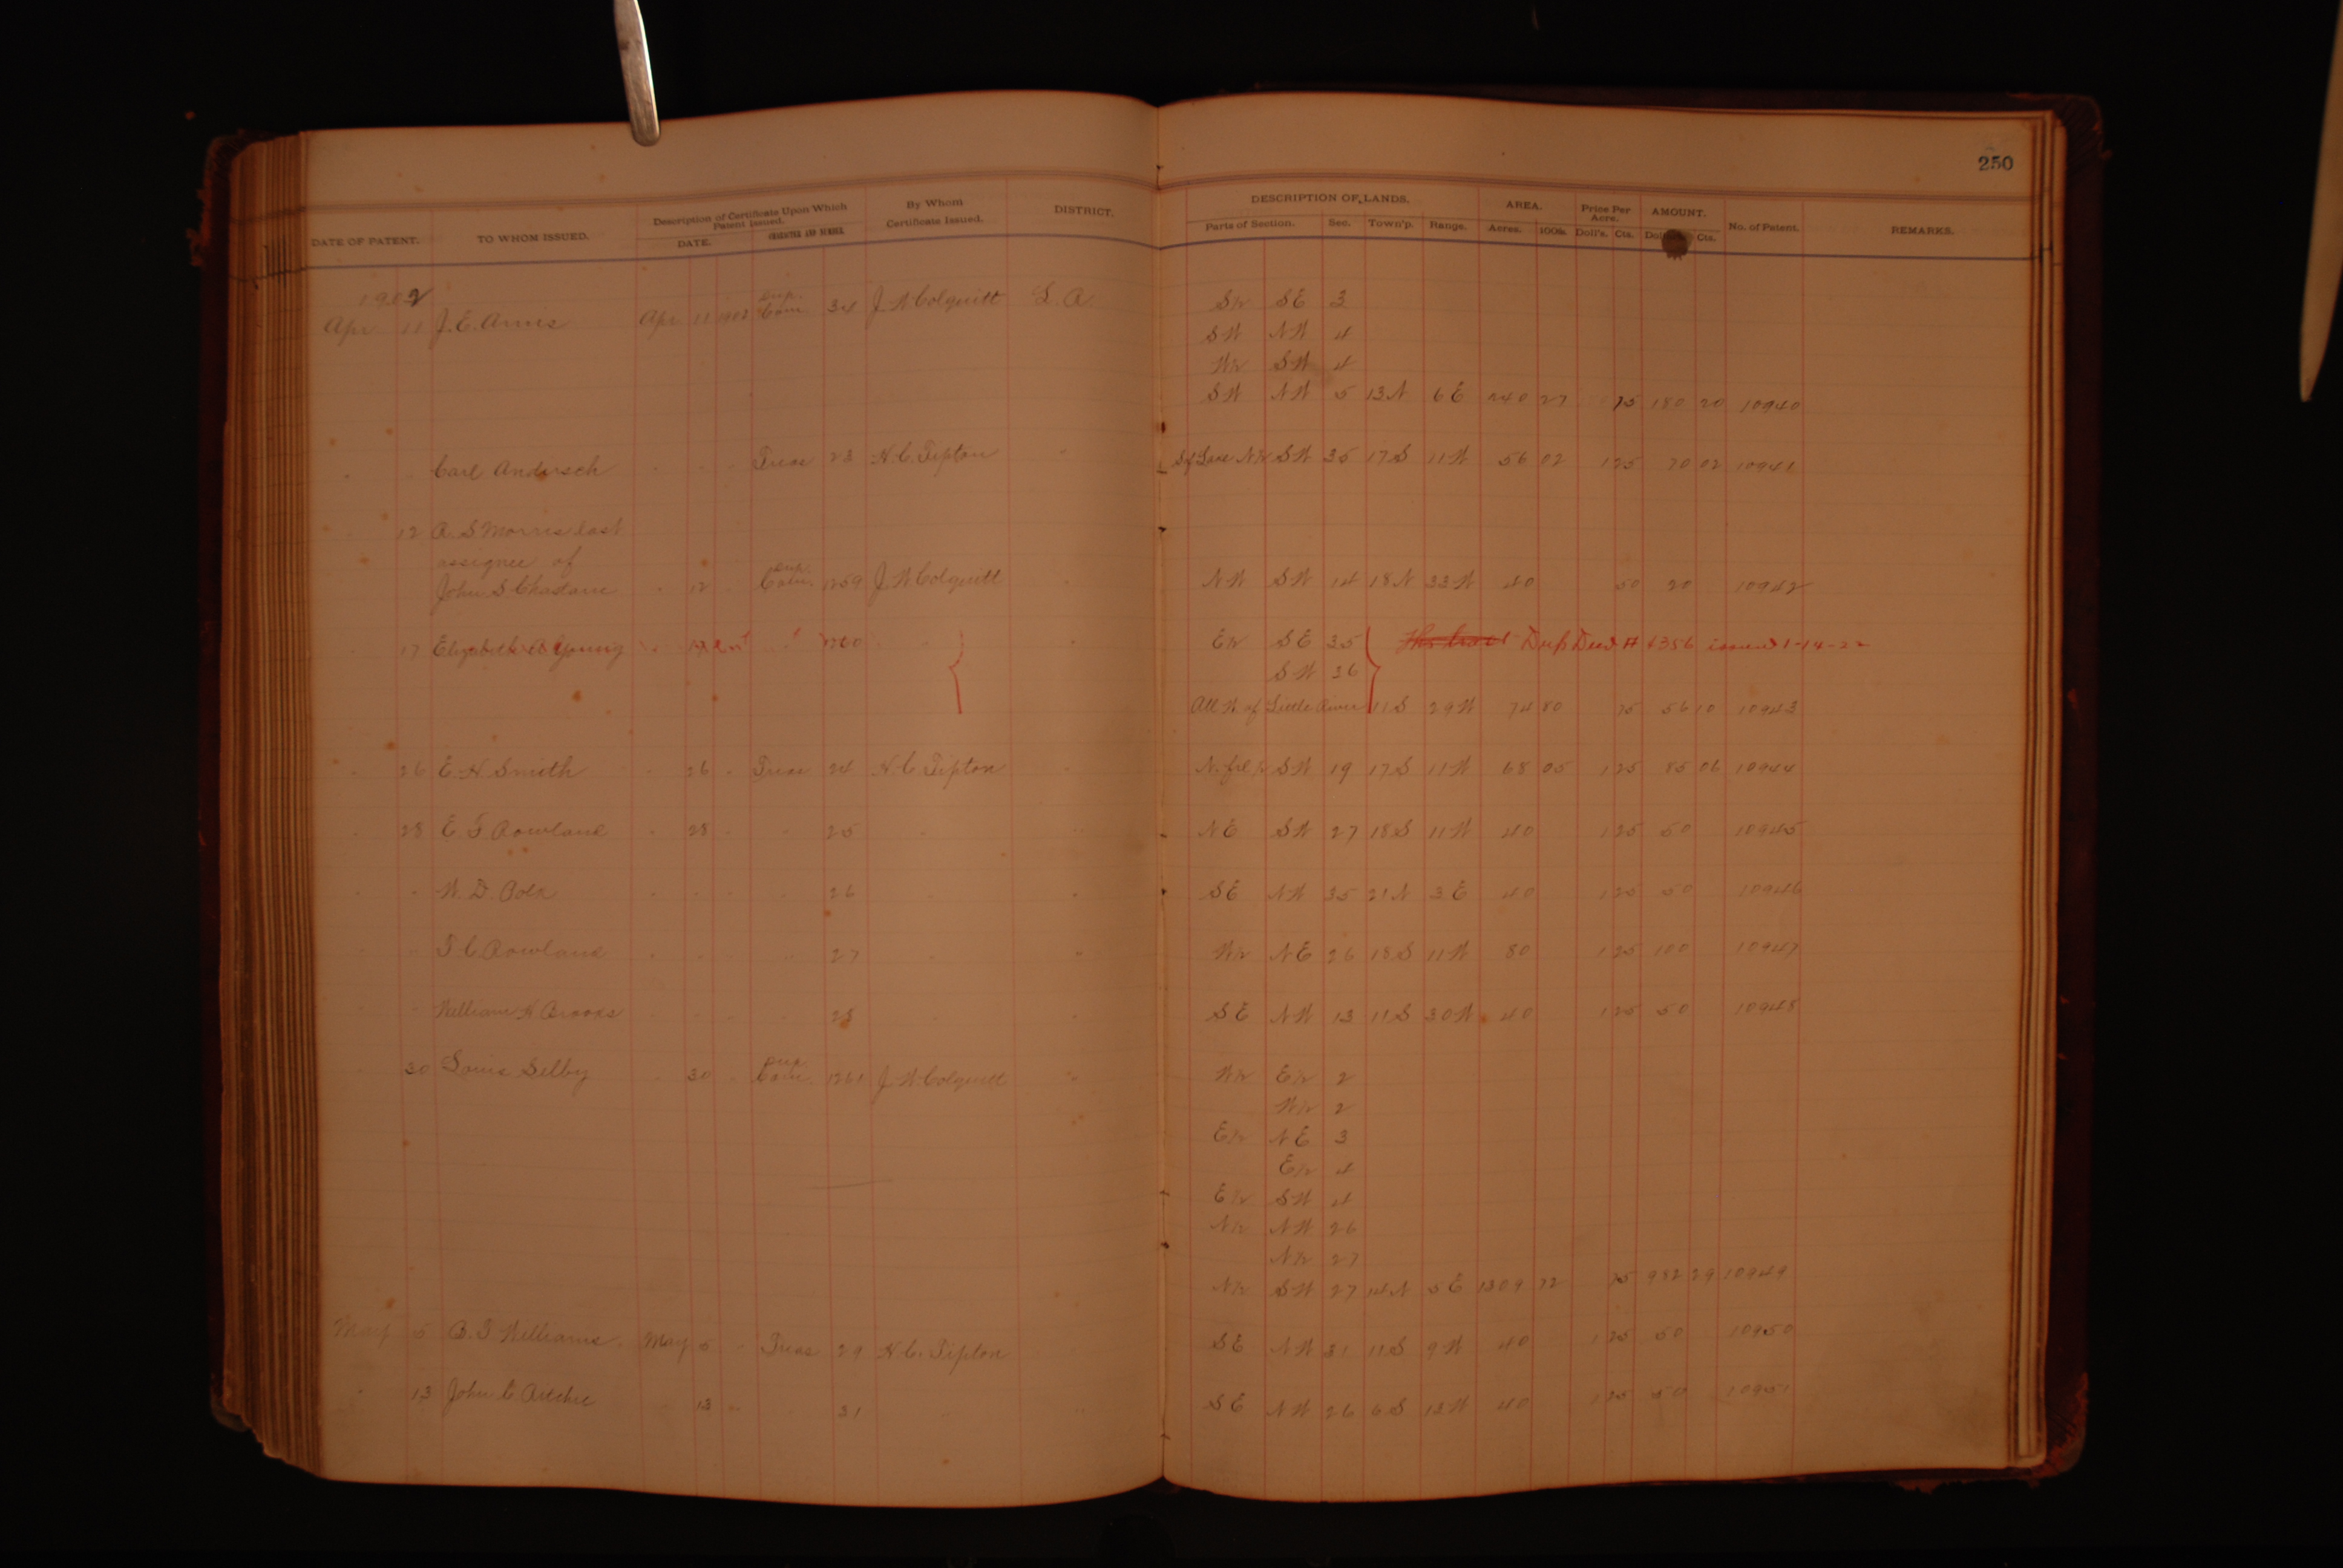 250
DATE OF PATENT. TO WHOM ISSUED. Description of Certificate Upon Which Patent Issued. DATE. CHARACTER AND NUMBER By Whom Certificate Issued. DISTRICT. DESCRIPTION OF LANDS. Parts of Section. Sec. Town'p. Range. AREA. Acres. 100ths. Price Per Acre. Doll's. Cts. AMOUNT. Cts. No. of Patent. REMARKS.
1902
Apr 11 J. E. Apr 11 1902 Com. 34 J W Colquitt S½ SE 3
SW NW 4
W½ SW 4
SW NW 5 13N 6E 240 27 75 180 20 10940
Carl Andersch Treas 23 H. C. Tipton N½ SW 35 17S 11W 56 02 1 25 70 02 10941
12 A. S Morris last
assignee of
John S 12 Com. 1259 J. W Colquitt NW SW 14 18N 33W 40 50 20 10942
17 Elizabeth Young 1260 E½ SE 35 Dup Deed # 6356 issued 1-14-22
SW 36
All W of Little River 11S 29W 74 80 75 56 10 10943
26 E. H. Smith 26 Treas 24 H C Tipton N. frl ½ SW 19 17S 11W 68 05 1 25 85 06 10944
28 E. F. Rowland 28 25 NE SW 27 18S 11W 40 1 25 50 10945
W. D. 26 SE NW 35 21N 3E 40 1 25 50 10946
T C Rowland 27 W½ NE 26 18S 11W 80 1 25 100 10947
William H Brooks 28 SE NW 13 11S 30W 40 1 25 50 10948
30 Louis Selby 30 Com. 1261 J. W Colquitt W½ E½ 2
W½ 2
E½ NE 3
E½ 4
E½ SW 4
N½ NW 26
N½ 27
N½ SW 27 14N 5E 1309 72 75 982 29 10949
May 5 B. F Williams. May 5 Treas 29 H. C. Tipton SE NW 31 11S 9W 40 1 25 50 10950
13 John C Ritchie 13 31 SE NW 26 6S 13W 40 1 25 50 10951